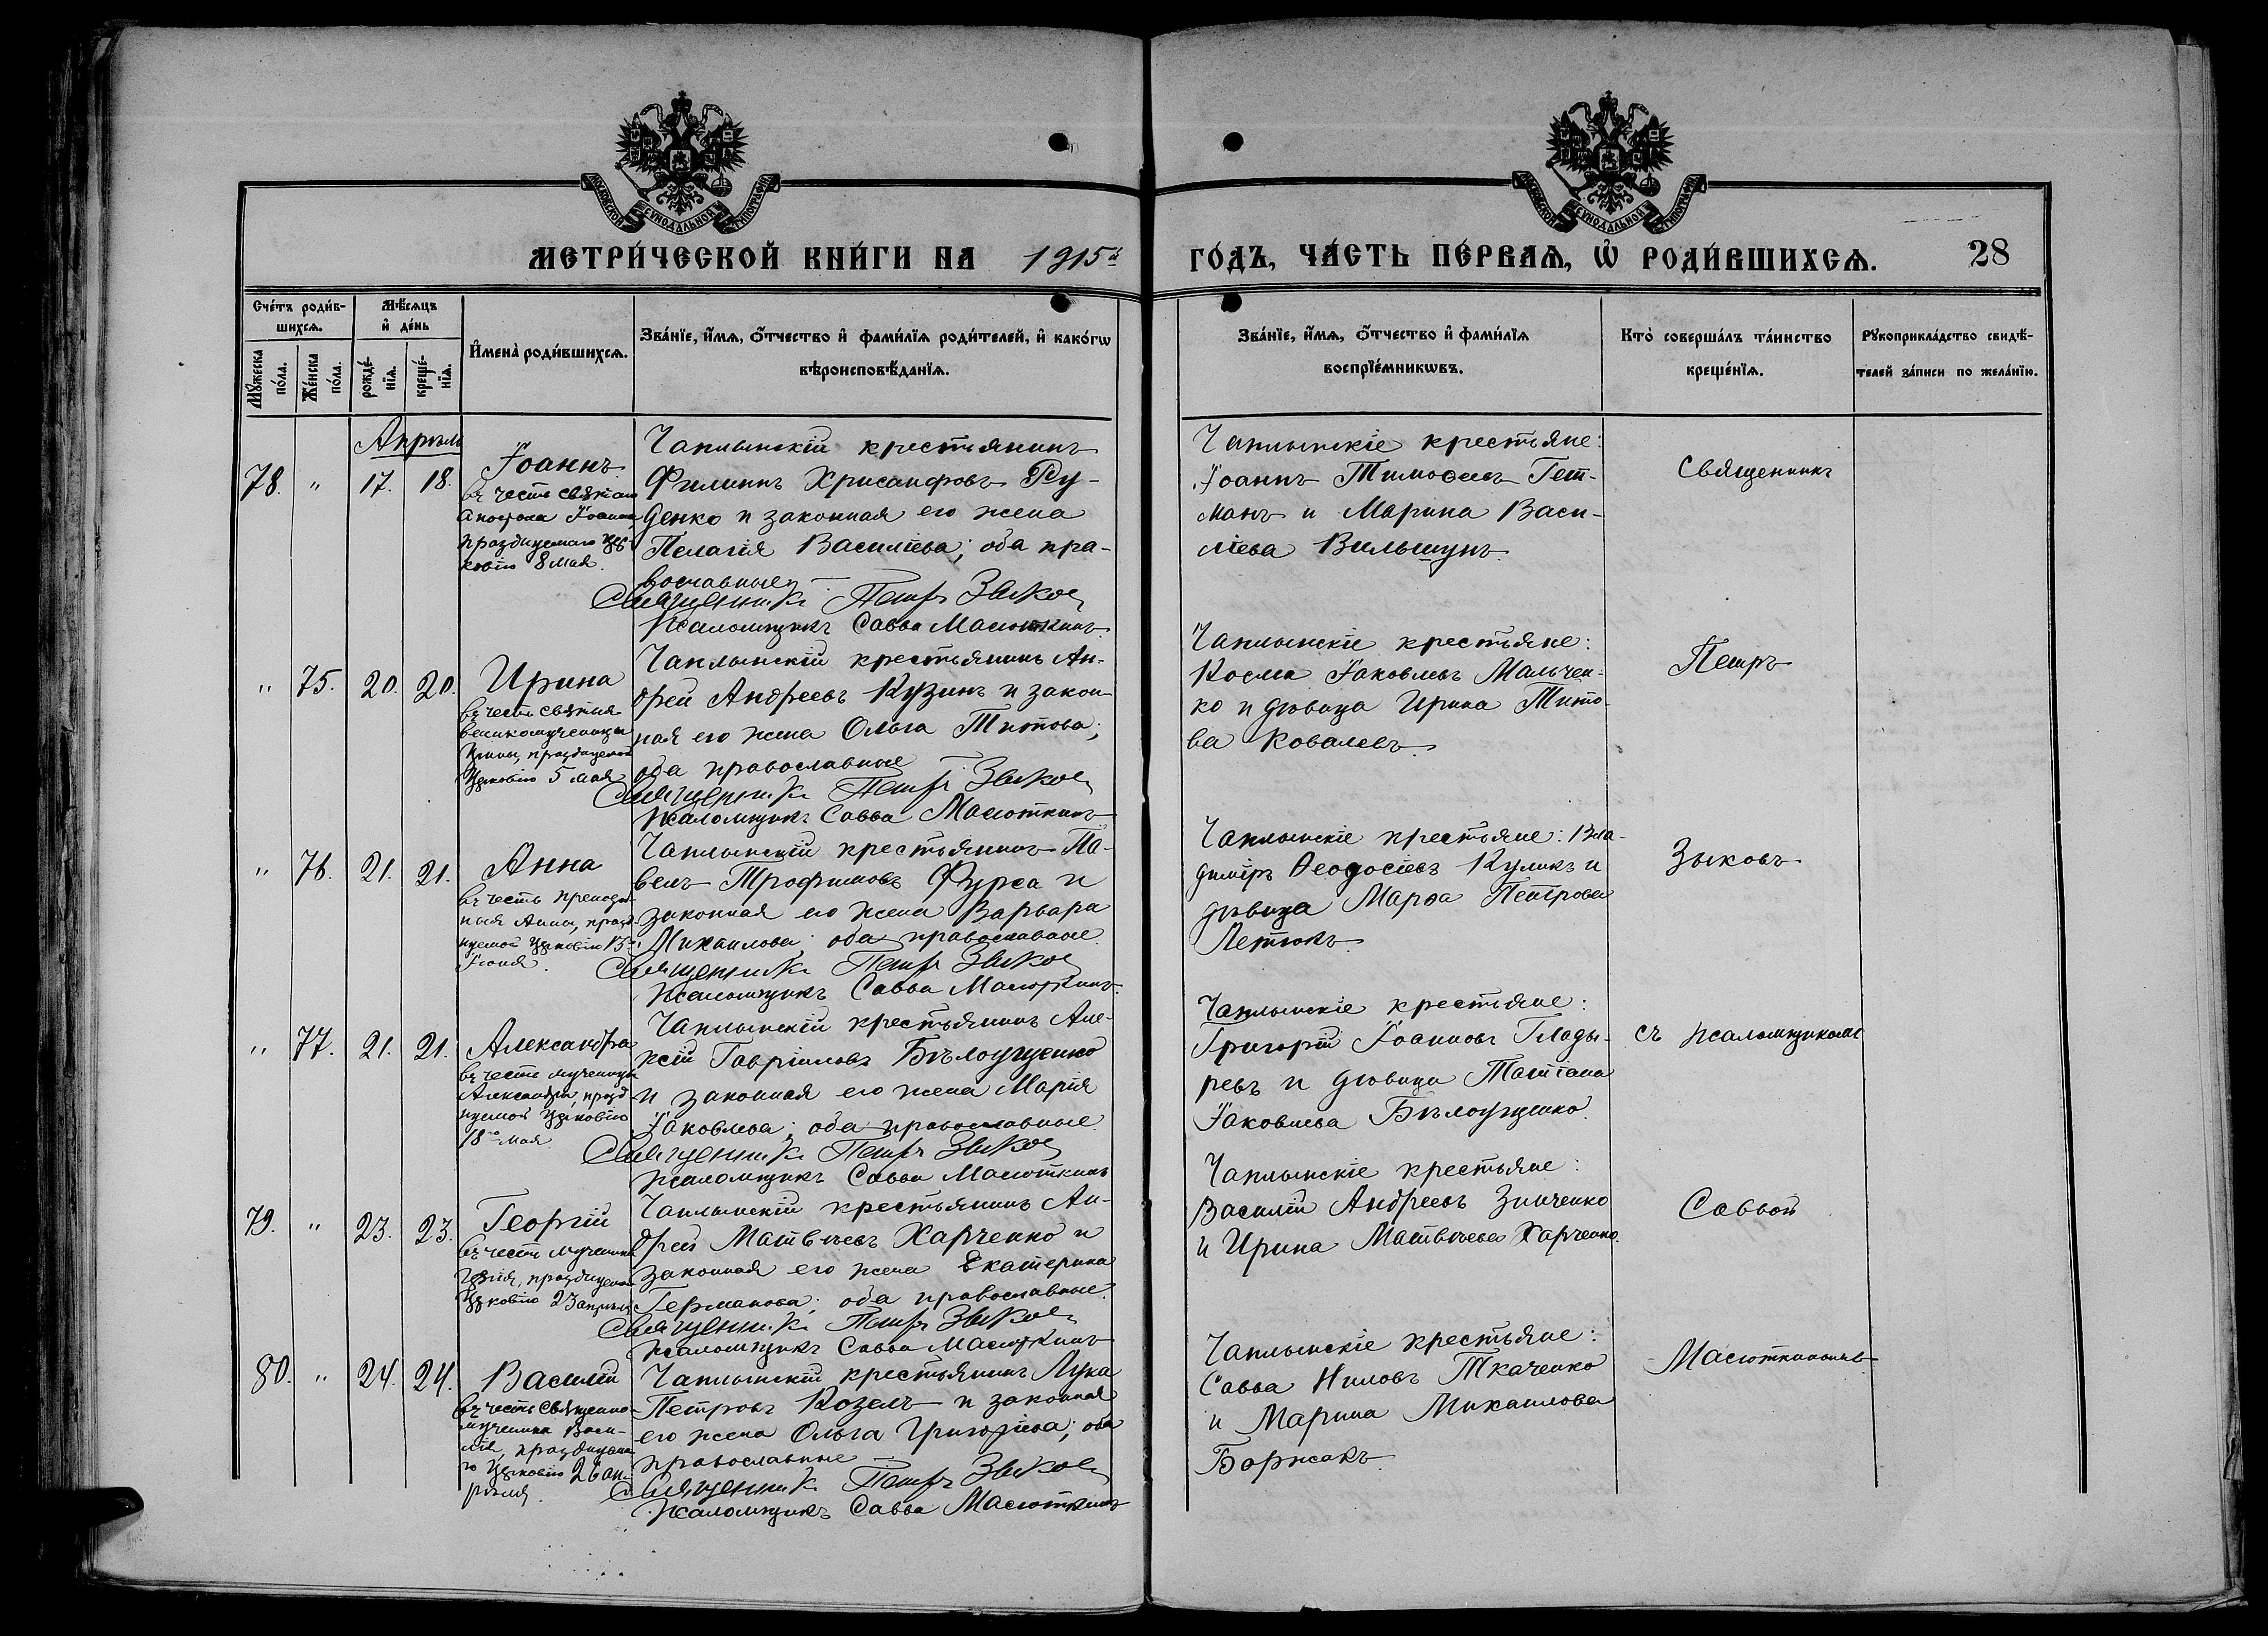 МОСКОВСКОЙ СѴНОДАЛЬНОЙ ТИПОГРАФІИ
МОСКОВСКОЙ СѴНОДАЛЬНОЙ ТИПОГРАФІИ
МЕТРИ́ЧЕСКОЙ КНИ́ГИ НА 1915й ГО́ДЪ, ЧА́СТЬ ПЕ́РВАѦ, Ѽ РОДИ́ВШИХСѦ. 28
Сче́тъ роди́в-
шихсѧ.
Мѣ́сѧцъ
и҆ де́нь
Мꙋ́жеска
по́ла.
Же́нска
по́ла.
рожде́-
нїѧ.
креще́-
нїѧ.
И҆мена̀ роди́вшихсѧ.
Зва́нїе, и҆́мѧ, ѻ҆́тчество и҆ фами́лїѧ роди́телей, и҆ како́гѡ
вѣроисповѣ́данїѧ.
Зва́нїе, и҆́мѧ, ѻ҆́тчество и҆ фами́лїѧ
воспрїе́мникѡвъ.
Кто̀ соверша́лъ та́инство
креще́нїѧ.
Рꙋкоприкла́дство свидѣ́-
телей за́писи по жела́нїю.
Апрѣль
78. " 17. 18.
Іоаннъ
въ честь святаго
Апостола Іоанна,
празднуемаго Цер-
ковію 8 мая.
Чаплынскій крестьянинъ
Филиппъ Хрисанфовъ Ру-
денко и законная его жена
Пелагія Василіева; оба пра-
вославные
Священникъ Петръ Зыковъ
Псаломщикъ Савва Масюткинъ
Чаплынскіе крестьяне:
Іоаннъ Тимоѳеевъ Гет-
манъ и Марина Васи-
ліева Вильшунъ.
Священникъ
" 75. 20. 20.
Ирина
въ честь святыя
великомученицы
Ирины, празднуемой
Церковію 5 мая
Чаплынскій крестьянинъ Ан-
дрей Андреевъ Кузинъ и закон-
ная его жена Ольга Титова;
оба православные
Священникъ Петръ Зыковъ
Псаломщикъ Савва Масюткинъ
Чаплынскіе крестьяне:
Косма Іаковлевъ Мальчен-
ко и дѣвица Ирина Тито-
ва Ковалевъ.
Петръ
" 76. 21. 21.
Анна
въ честь преподоб-
ныя Анны, празд-
нуемой Церковію 13го
Іюня.
Чаплынскій крестьянинъ Па-
велъ Трофимовъ Фурса и
законная его жена Варвара
Михаилова; оба православные.
Священникъ Петръ Зыковъ
Псаломщикъ Савва Масюткинъ.
Чаплынскіе крестьяне: Вла-
диміръ Ѳеодосіевъ Куликъ и
дѣвица Марѳа Петрова
Летюкъ
Зыковъ
" 77. 21. 21.
Александра
въ честь мученицы
Александры, празд-
нуемой Церковію
18го мая
Чаплынскій крестьянинъ Але-
ксій Гавріиловъ Бѣлоущенко
и законная его жена Марія
Іаковлева; оба православные.
Священникъ Петръ Зыковъ
Псаломщикъ Савва Масюткинъ
Чаплынскіе крестьяне:
Григорій Іоанновъ Глады-
ревъ и дѣвица Татіана
Іаковлева Бѣлоущенко.
съ псаломщикомъ
79. " 23. 23.
Георгій
въ честь мученика
Георгія, празднуемаго
Церковію 23 апрѣля
Чаплынскій крестьянинъ Ан-
дрей Матвѣевъ Харченко и
законная его жена Екатерина
Германова; оба православные.
Священникъ Петръ Зыковъ
Псаломщикъ Савва Масюткинъ
Чаплынскіе крестьяне:
Василій Андреевъ Зинченко
и Ирина Матвѣева Харченко.
Саввой
80. " 24. 24.
Василій
въ честь священно-
мученика Васи-
лія, празднуема-
го Церковію 26 ап-
рѣля.
Чаплынскій крестьянинъ Лука
Петровъ Козелъ и законная
его жена Ольга Григоріева; оба
православные
Священникъ Петръ Зыковъ
Псаломщикъ Савва Масюткинъ
Чаплынскіе крестьяне:
Савва Ниловъ Ткаченко
и Марина Михаилова
Боржакъ.
Масюткинымъ